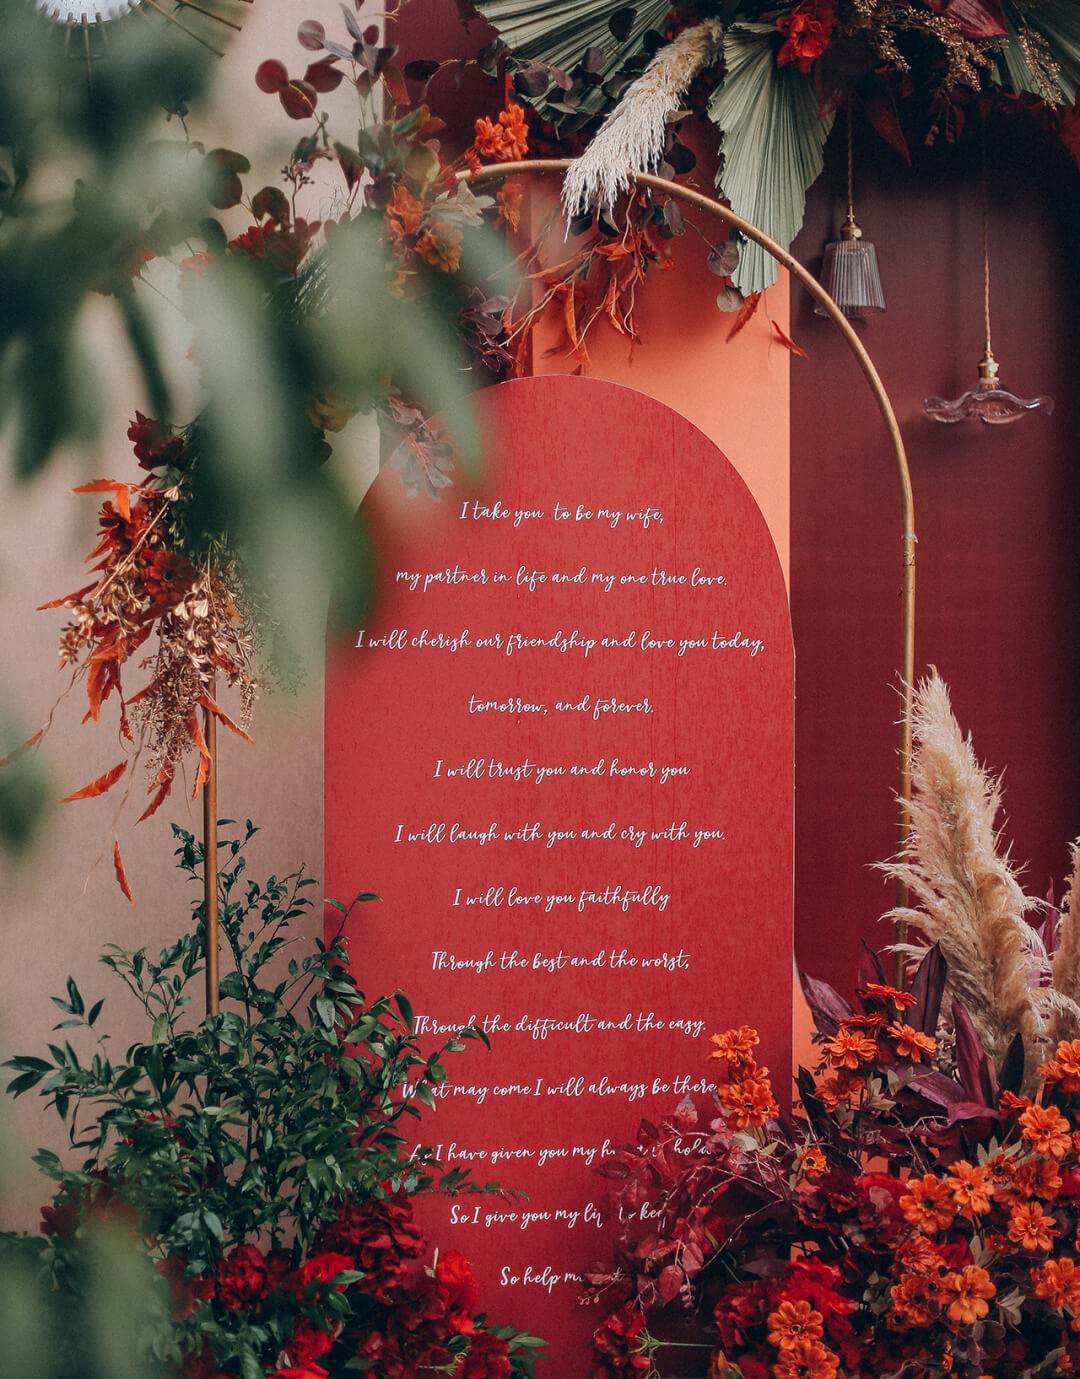 I take you to be my wife,
my partner in life and my one true love.
I will cherish our friendship and love you today,
tomorrow, and forever.
I will trust you and honor you
I will laugh with you and cry with you.
I will love you faithfully
Through the best and the worst,
Through the difficult and the easy.
What may come I will always be there.
As I have given you my
So I give you my life to keep
So help me